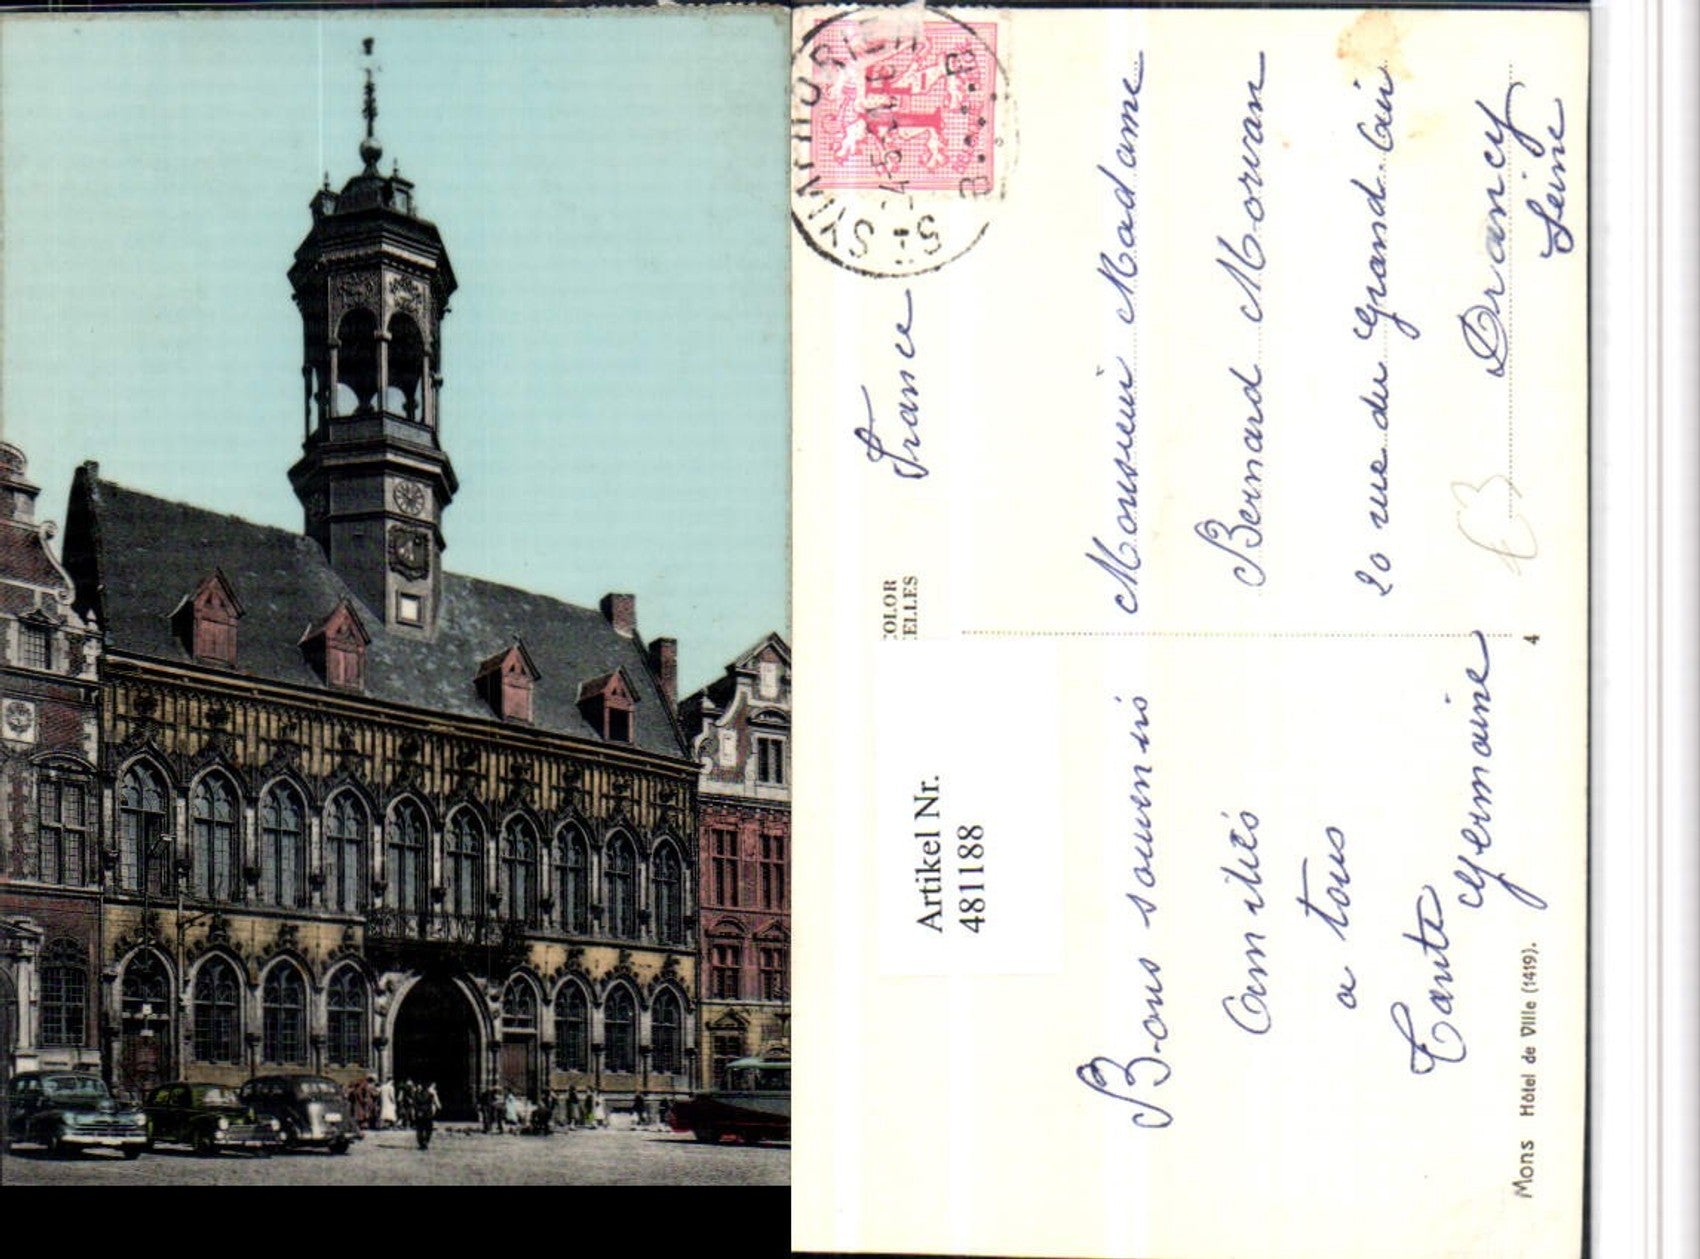 Bons souvenirs
Amitiés
a tous
Tante
Germaine
Mons Hôtel de Ville (1419).
4
COLOR
ELLES
Artikel Nr.
481188
France
Monsieur Madame
Bernard Morvan
20 rue du Grand
Drancy
Seine
St SYMPHORIEN
B B